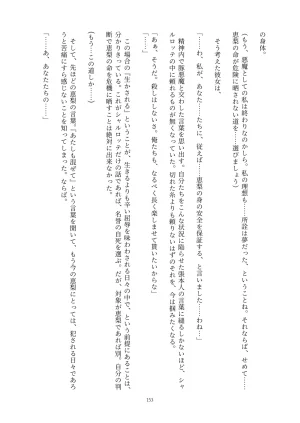 の身体。
(もう、悪魔としての私は終わりなのかしら。私の理想も……所詮は夢だった、ということね。それならば、せめて……
恵梨の命が危険に晒されない道を……選びましょう)
そう考えた彼女は、
「……わ、私が、あなた……たちに、従えば……恵梨の身の安全を保証する、と言いました……わね……」
精神内で豚悪魔と交わした言葉を思い出す。自分たちをこんな状況に陥らせた張本人の言葉に縋るしかないほど、シャ
ルロッテの中に頼れるものが無くなっていた。切れた糸よりも頼りないはずのそれを、今は掴みたくなる。
「あぁ、そうだ。殺しはしないさ。俺たちも、なるべく長く楽しませて貰いたいからな」
「……」
この場合の『生かされる』ということが、生きるよりも辛い屈辱を味わわされる日々の中で、という前提にあることは、
分かりきっている。これがシャルロッテだけの話であれば、名誉の自死を選ぶ。だが、対象が恵梨であれば別。自分の判
断で恵梨の命を危機に晒すことは絶対に出来なかった。
(もう……この道しか……)
そして、先ほどの恵梨の言葉。『あたしも混ぜて』という言葉を聞いて、もう今の恵梨にとっては、犯される日々であろ
うと苦痛にすら感じないことを知ってしまった。ならば。
「……あ、あなたたちの……」
153